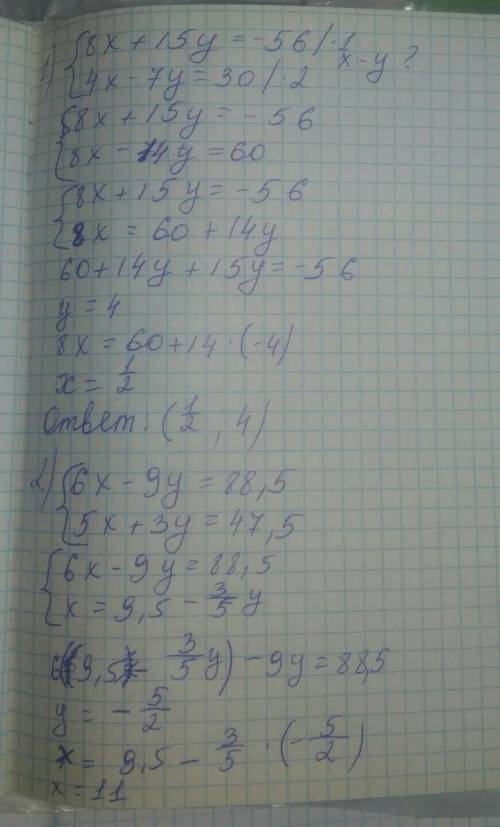 1) {8x + 15y = -56 | · 1
x - y ?
{4x - 7y = 30 | · 2
{8x + 15y = - 56
{8x - 14y = 60
{8x + 15y = -56
{8x = 60 + 14y
60 + 14y + 15y = -56
y = 4
8x = 60 + 14 · (-4)
x = 1/2
Ответ: (1/2 ; 4)
2) {6x - 9y = 88,5
{5x + 3y = 47,5
{6x - 9y = 88,5
{x = 9,5 - 3/5 y
6(9,5 - 3/5 y) - 9y = 88,5
y = - 5/2
x = 9,5 - 3/5 · (- 5/2)
x = 11